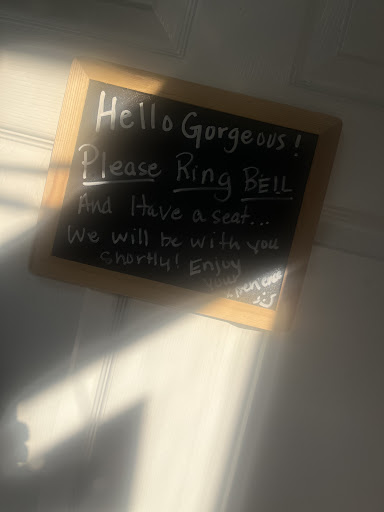 Hello Gorgeous!
Please Ring BELL
And Have a seat...
We will be with you
shortly! Enjoy
your